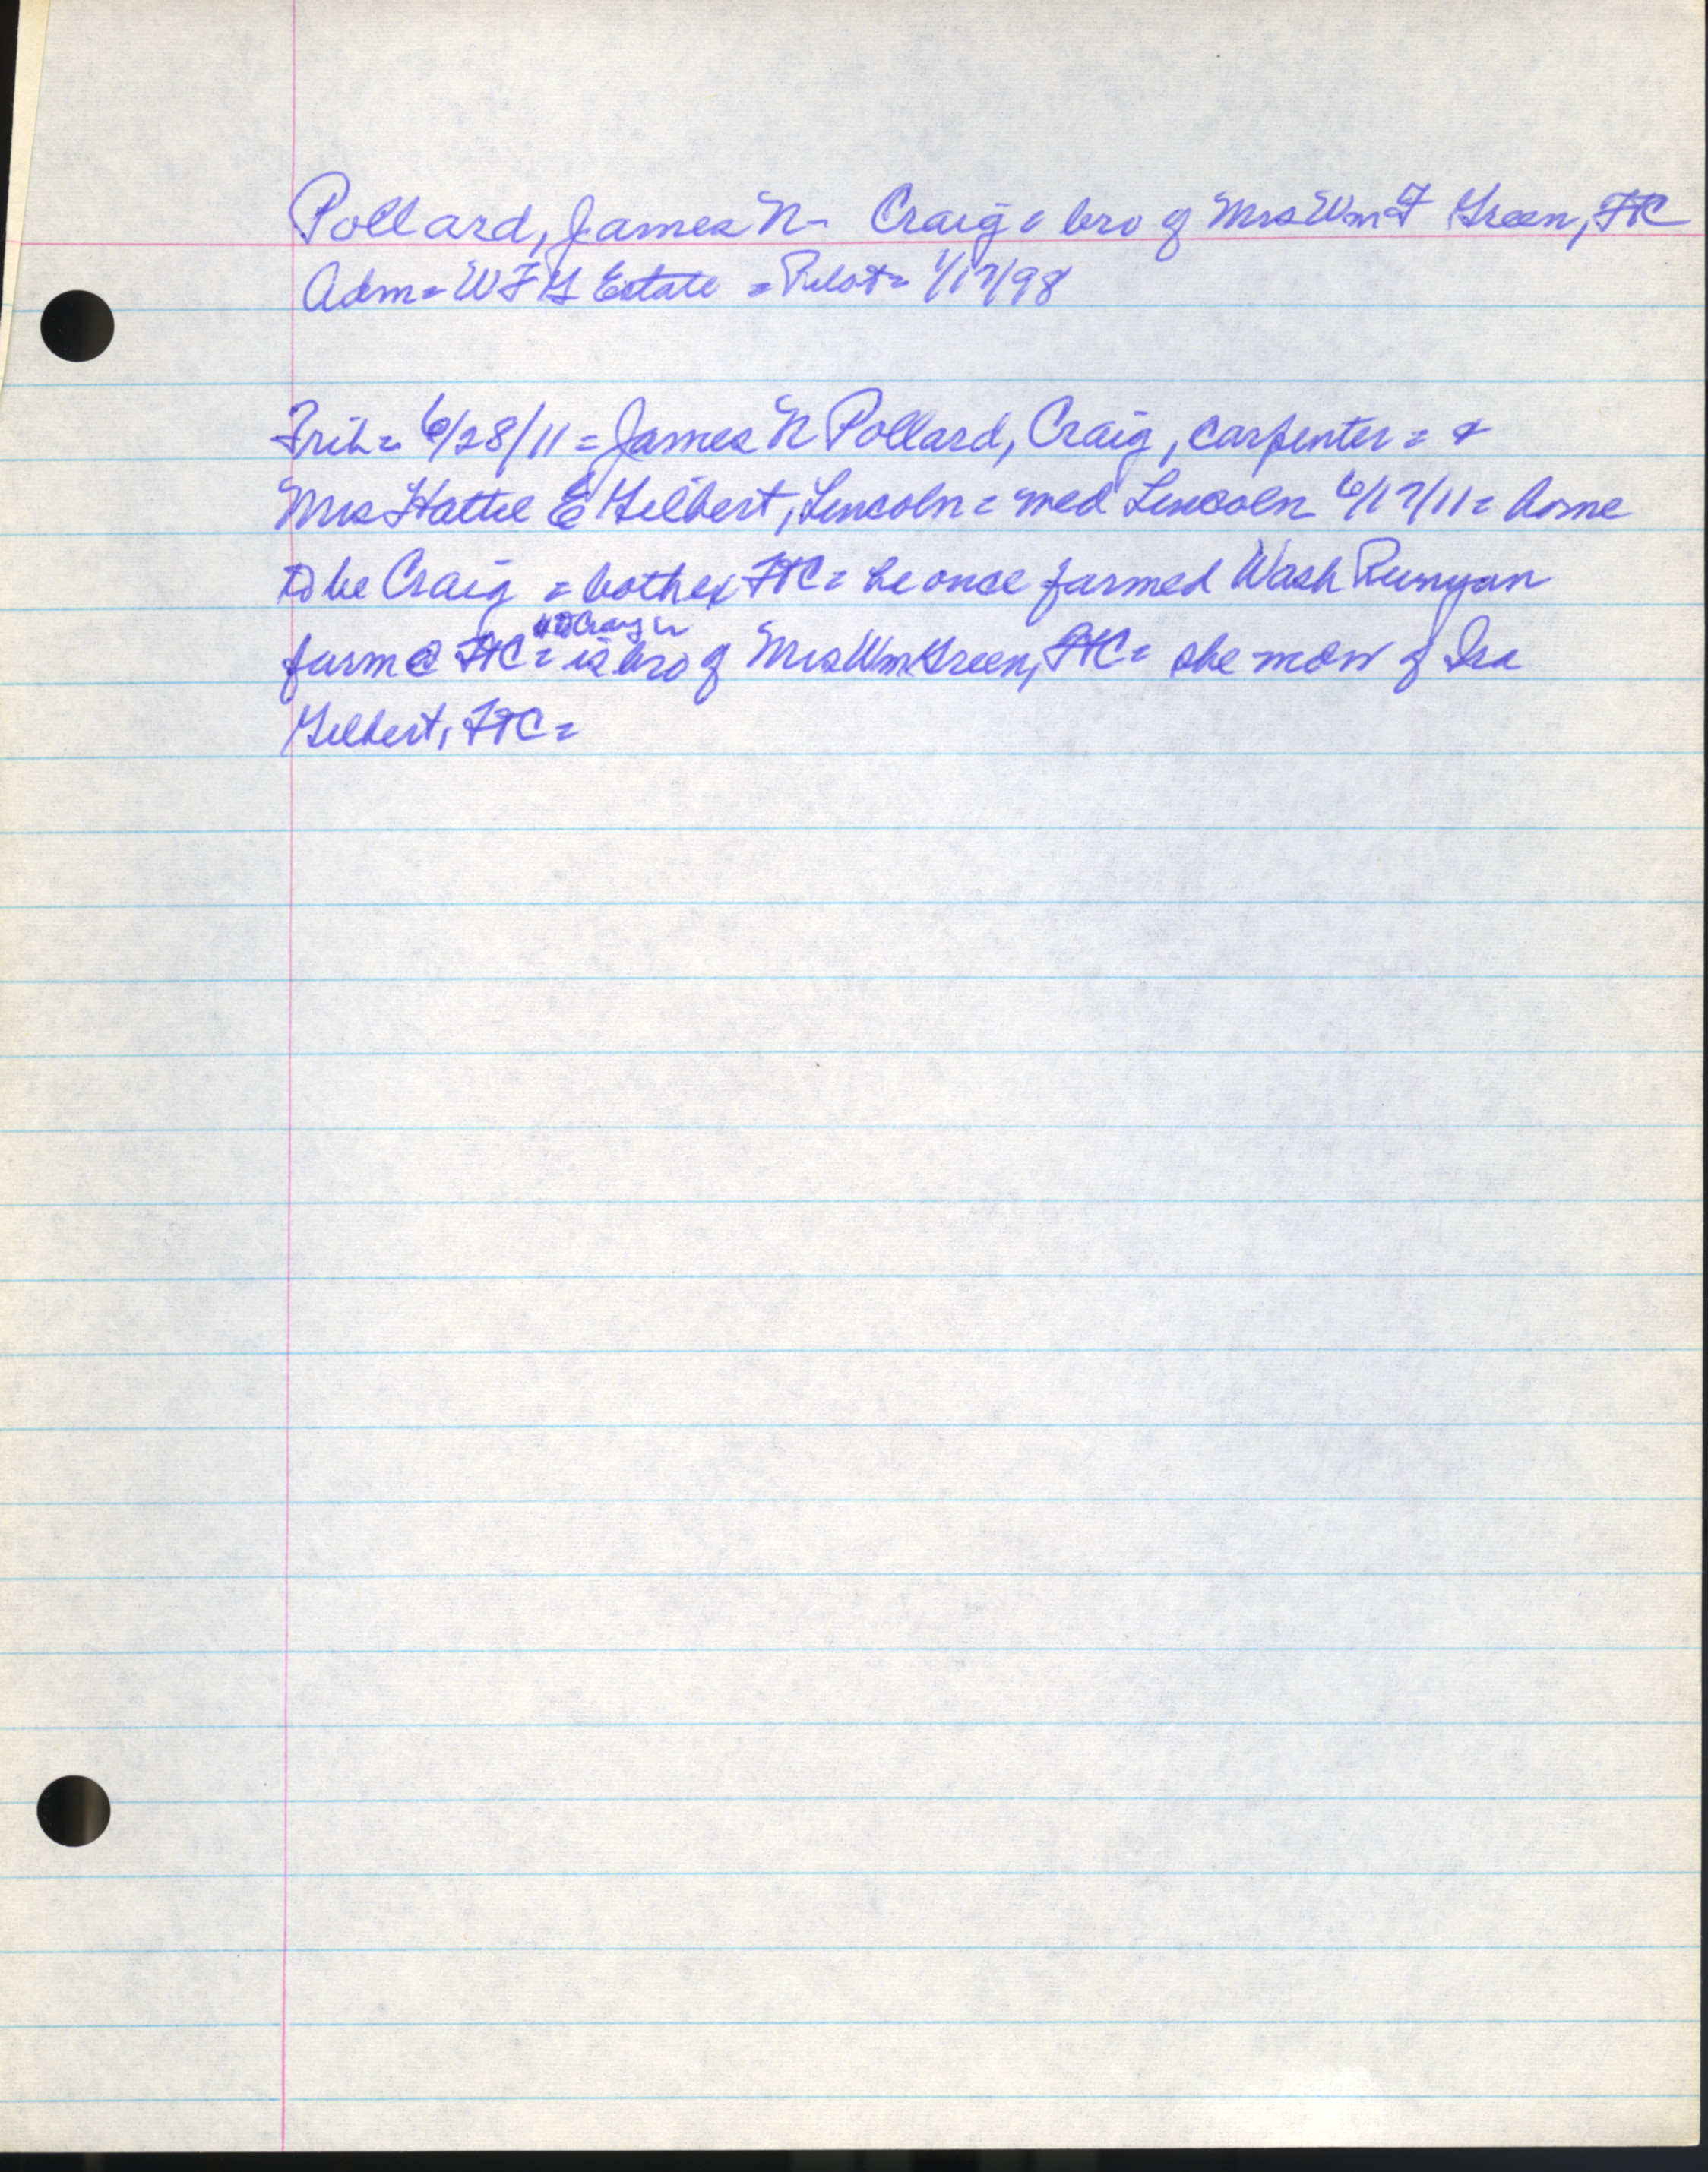 Pollard, James N - Craig = bro of Mrs Wm F Green, FtC
Adm = W F G Estate = Pilot = 1/17/98
Trib = 6/28/11 = James N Pollard, Craig, carpenter = &
Mrs Hattie E Gilbert, Lincoln = med Lincoln 6/17/11 = home
to be Craig = both ex FtC = he once farmed Wash Runyan
farm @ FtC = is bro of Mrs Wm Green, FtC = she mow of Ira
Gilbert, FtC =